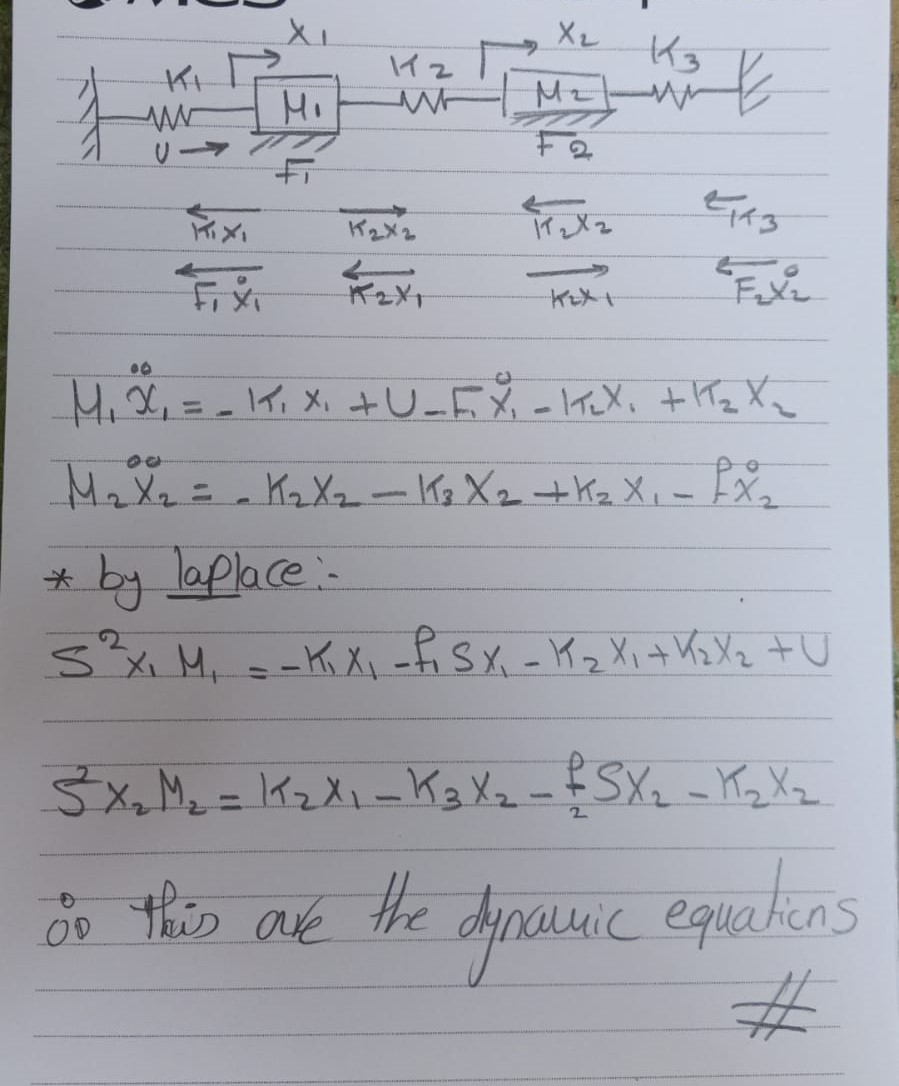 X₁ X₂
K₁ K₂ K₃
M₁ M₂
U → F₁ F2
K₁X₁ K₂X₂ K₂X₂ K3
F₁Ẋ₁ K₂X₁ K₂X₁ F₂Ẋ₂
M₁ẍ₁ = - K₁ X₁ + U - F₁Ẋ₁ - K₂X₁ + K₂ X₂
M₂Ẍ₂ = - K₂X₂ - K₃X₂ + K₂X₁ - fẊ₂
* by laplace:-
S²X₁ M₁ = -K₁X₁ - f₁ SX₁ - K₂X₁ + K₂X₂ + U
S²X₂M₂ = K₂X₁ - K₃X₂ - f₂ SX₂ - K₂X₂
∴ This are the dynamic equations
#